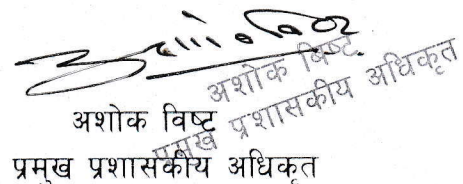 अशोक विष्ट
प्रमुख प्रशासकीय अधिकृत
अशोक विष्ट
प्रमुख प्रशासकीय अधिकृत